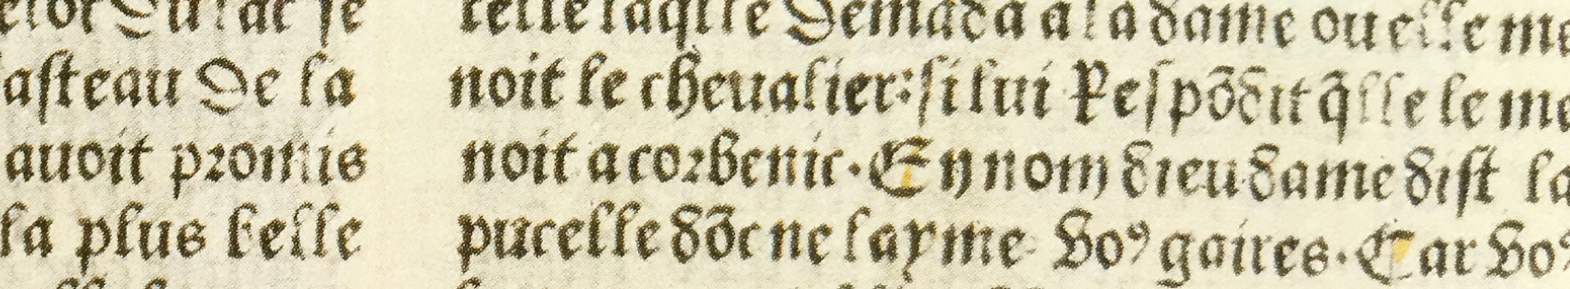 du lac se
asteau De la
auoit promis
la plus belle
celle laqlle Demāda a la dame ou elle me
noit le cheualier: si lui Respōdit q̄lle le me
noit a corbenic. En nom dieu dame dist la
pucelle dōc ne layme voꝰ gaires. Car voꝰ